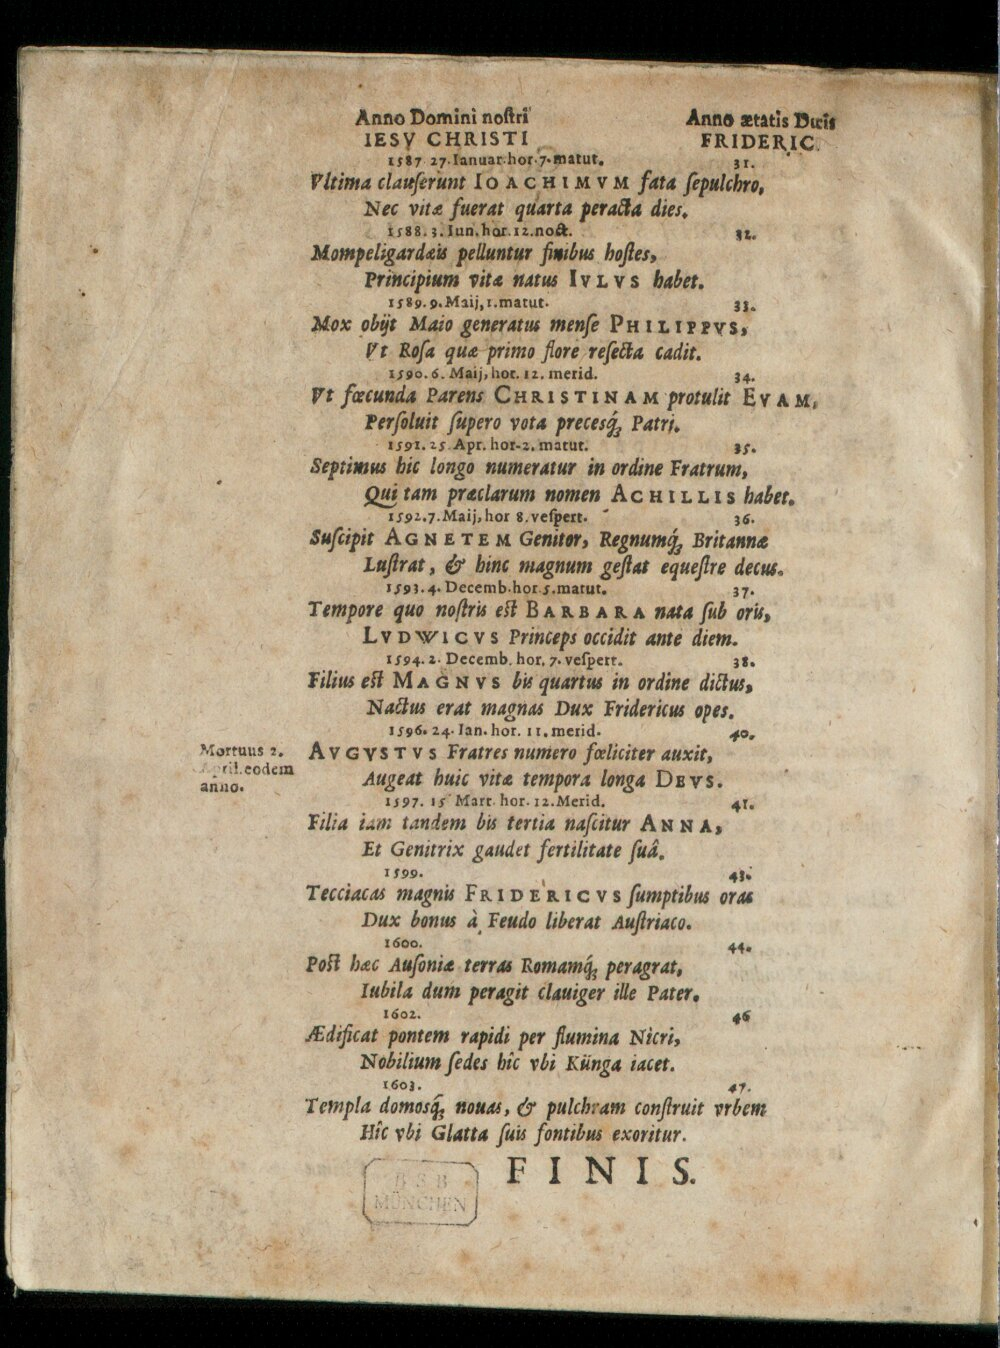 Anno Domini noſtri
Anno ætatis Ducis
IESV CHRISTI
FRIDERIC.
1587 27. Ianuar. hor. 7. matut.
31.
Vltima clauſerunt IOACHIMVM fata ſepulchro,
Nec vitæ fuerat quarta peracta dies.
1588. 3. Iun. hor. 12. noct.
32.
Mompeligardæis pelluntur finibus hoſtes,
Principium vitæ natus IVLVS habet.
1589. 9. Maij, 1. matut.
33.
Mox obijt Maio generatus menſe PHILIPPVS,
Vt Roſa quæ primo flore reſecta cadit.
1590. 6. Maij, hor. 12. merid.
34.
Vt fœcunda Parens CHRISTINAM protulit EVAM,
Perſoluit ſupero vota preceſq́; Patri.
1591. 25 Apr. hor. 2. matut.
35.
Septimus hic longo numeratur in ordine Fratrum,
Qui tam præclarum nomen ACHILLIS habet.
1592. 7. Maij, hor 8. veſpert.
36.
Suſcipit AGNETEM Genitor, Regnumq́; Britannæ
Luſtrat, & hinc magnum geſtat equeſtre decus.
1593. 4. Decemb. hor. 5. matut.
37.
Tempore quo noſtris eſt BARBARA nata ſub oris,
LVDWICVS Princeps occidit ante diem.
1594. 2. Decemb. hor. 7. veſpert.
38.
Filius eſt MAGNVS bis quartus in ordine dictus,
Nactus erat magnas Dux Fridericus opes.
1596. 24. Ian. hor. 11. merid.
40.
Mortuus 2.
April. eodem
anno.
AVGVSTVS Fratres numero fœliciter auxit,
Augeat huic vitæ tempora longa DEVS.
1597. 15 Mart. hor. 12. Merid.
41.
Filia iam tandem bis tertia naſcitur ANNA,
Et Genitrix gaudet fertilitate ſuâ.
1599.
43.
Tecciacas magnis FRIDERICVS ſumptibus oras
Dux bonus à Feudo liberat Auſtriaco.
1600.
44.
Poſt hæc Auſoniæ terras Romamq́; peragrat,
Iubila dum peragit clauiger ille Pater.
1602.
46
Ædificat pontem rapidi per flumina Nicri,
Nobilium ſedes hîc vbi Künga iacet.
1603.
47.
Templa domoſq́; nouas, & pulchram conſtruit vrbem
Hîc vbi Glatta ſuis fontibus exoritur.
FINIS.
BSB
MÜNCHEN